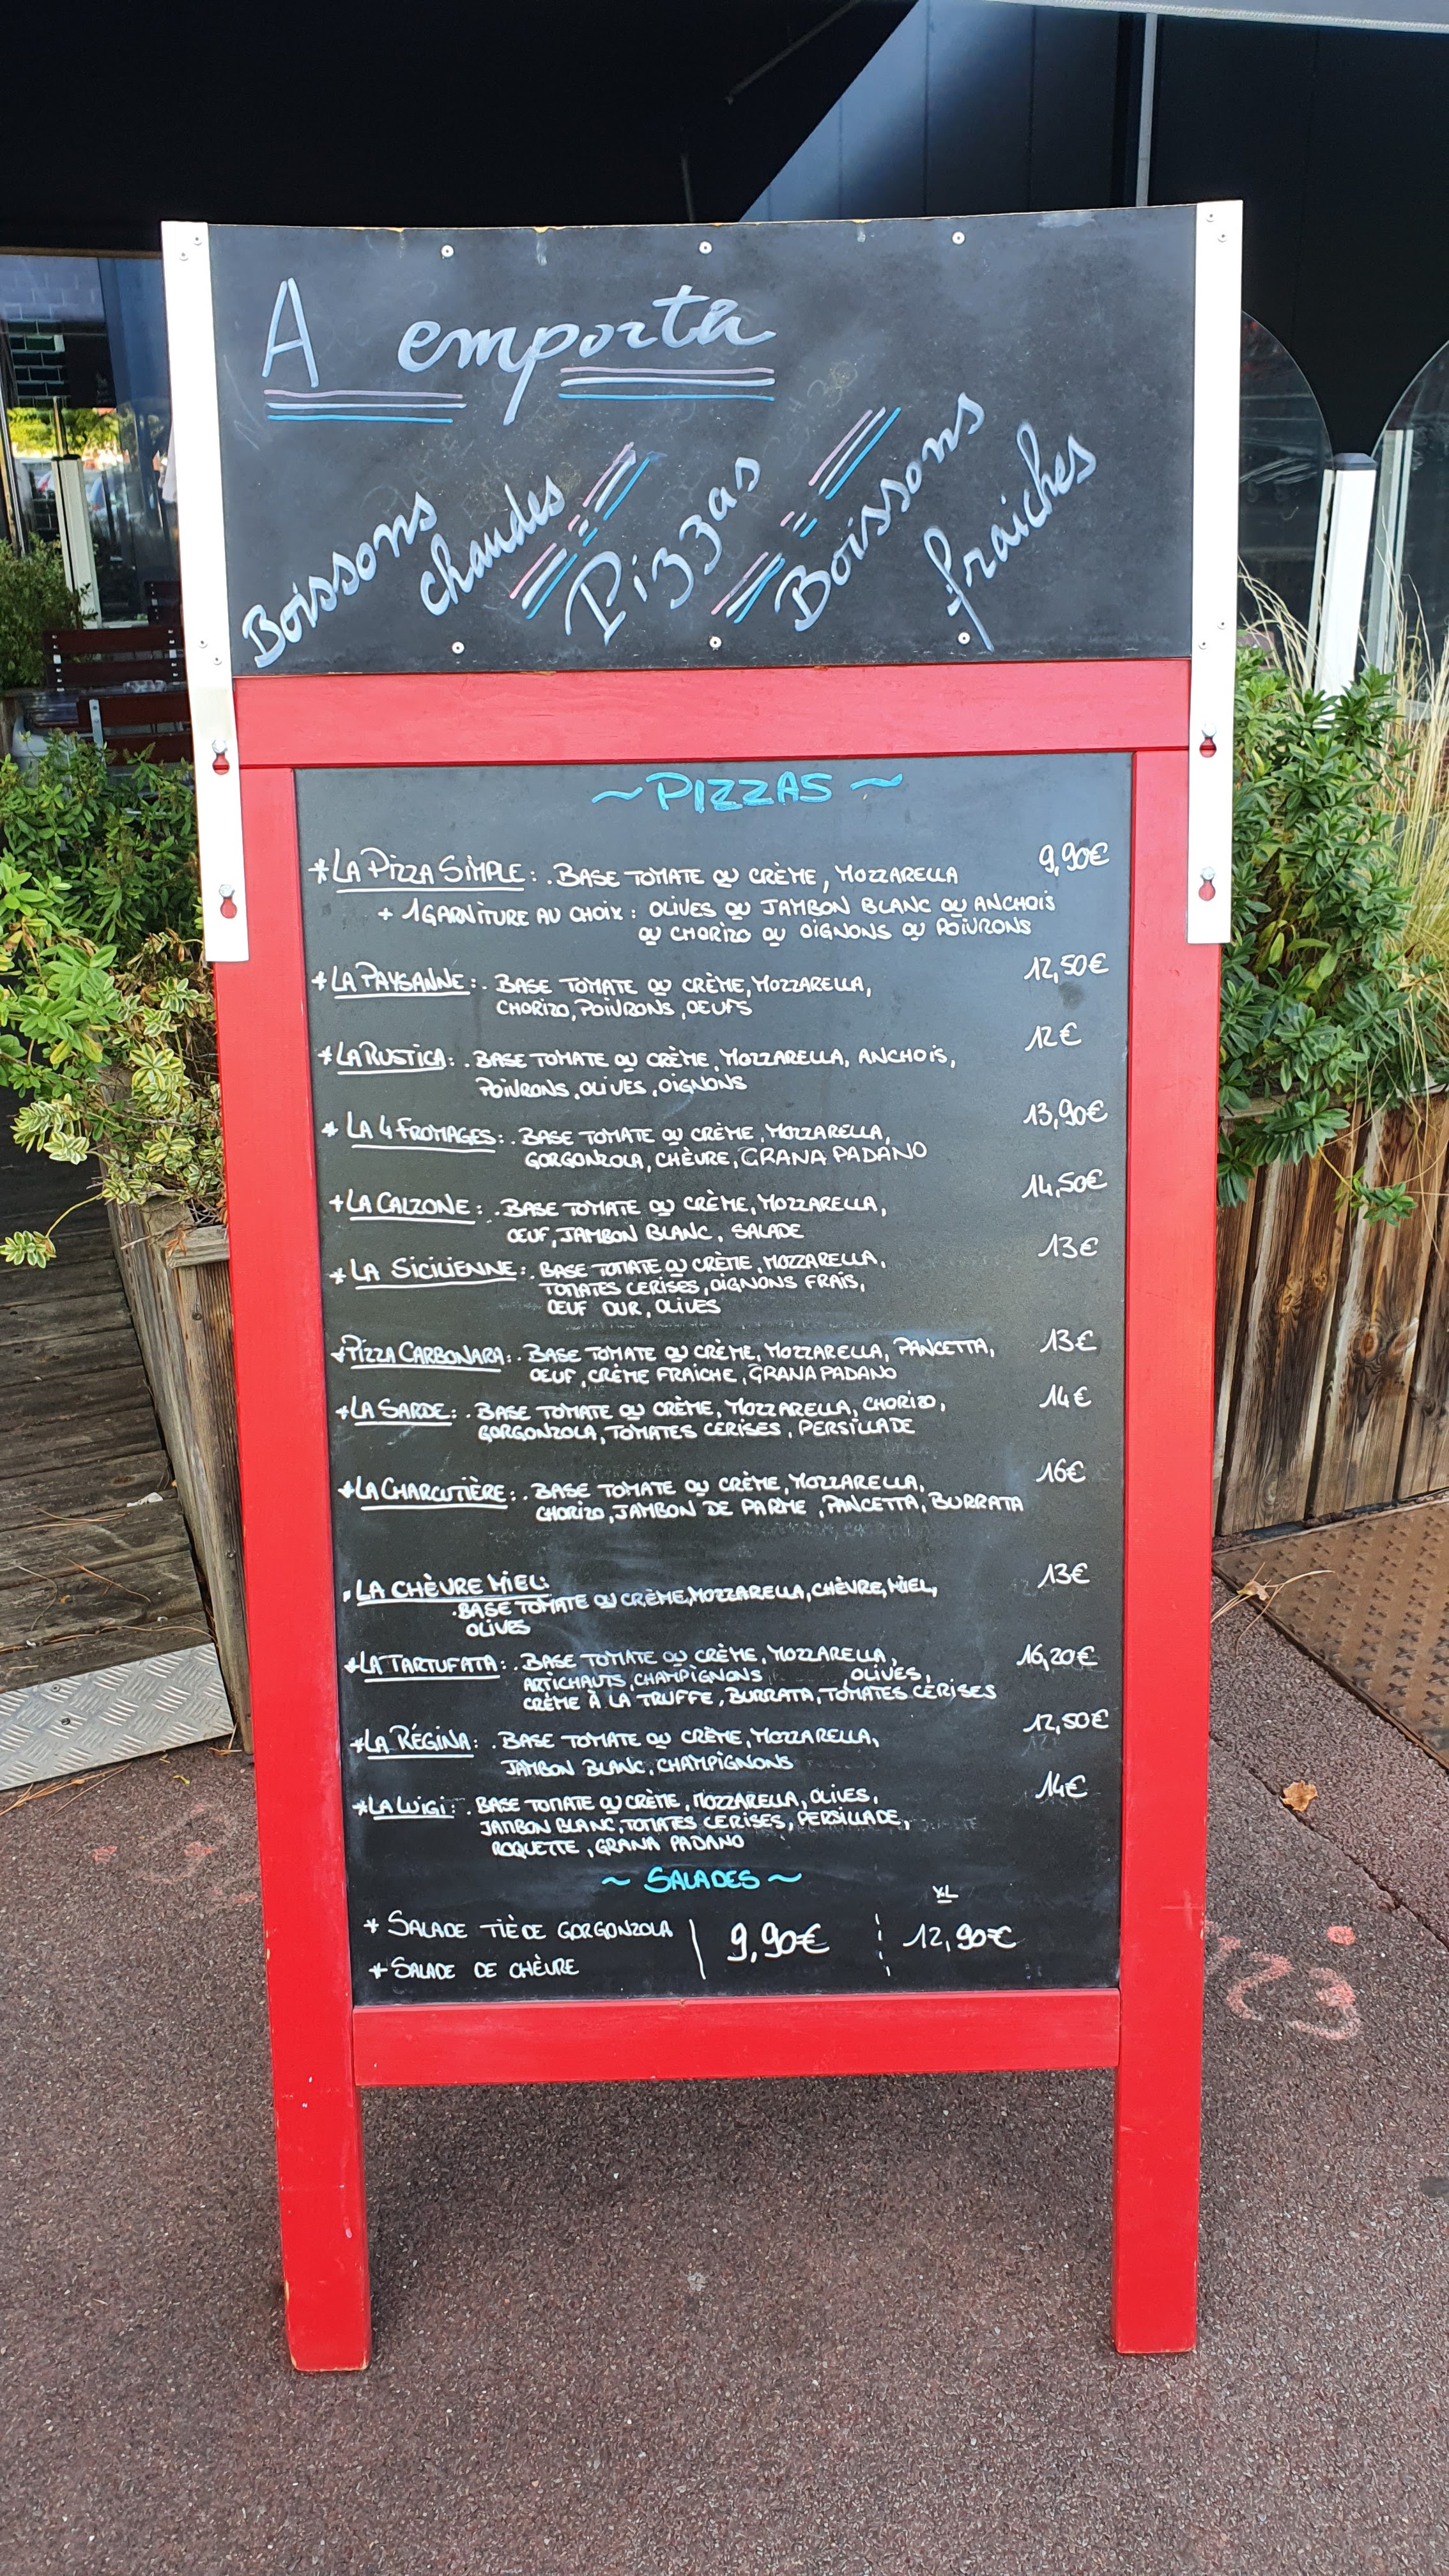 A emporta
Boissons
chaudes
Pizzas
Boissons
fraiches
~ PIZZAS ~
* LA PIZZA SIMPLE : . BASE TOMATE OU CRÈME, MOZZARELLA 9,90€
+ 1 GARNITURE AU CHOIX : OLIVES OU JAMBON BLANC OU ANCHOIS
OU CHORIZO OU OIGNONS OU POIVRONS
* LA PAYSANNE : . BASE TOMATE OU CRÈME, MOZZARELLA, 12,50€
CHORIZO, POIVRONS, OEUFS
* LA RUSTICA : . BASE TOMATE OU CRÈME, MOZZARELLA, ANCHOIS, 12€
POIVRONS, OLIVES, OIGNONS
* LA 4 FROMAGES : . BASE TOMATE OU CRÈME, MOZZARELLA, 13,90€
GORGONZOLA, CHÈVRE, GRANA PADANO
* LA CALZONE : . BASE TOMATE OU CRÈME, MOZZARELLA, 14,50€
ŒUF, JAMBON BLANC, SALADE
* LA SICILIENNE : . BASE TOMATE OU CRÈME, MOZZARELLA, 13€
TOMATES CERISES, OIGNONS FRAIS,
ŒUF DUR, OLIVES
* PIZZA CARBONARA : . BASE TOMATE OU CRÈME, MOZZARELLA, PANCETTA, 13€
ŒUF, CRÈME FRAICHE, GRANA PADANO
* LA SARDE : . BASE TOMATE OU CRÈME, MOZZARELLA, CHORIZO, 14€
GORGONZOLA, TOMATES CERISES, PERSILLADE
* LA CHARCUTIÈRE : . BASE TOMATE OU CRÈME, MOZZARELLA, 16€
CHORIZO, JAMBON DE PARME, PANCETTA, BURRATA
* LA CHÈVRE MIEL : 13€
. BASE TOMATE OU CRÈME, MOZZARELLA, CHÈVRE, MIEL,
OLIVES
* LA TARTUFATA : . BASE TOMATE OU CRÈME, MOZZARELLA, 16,20€
ARTICHAUTS, CHAMPIGNONS OLIVES,
CRÈME À LA TRUFFE, BURRATA, TOMATES CERISES
* LA RÉGINA : . BASE TOMATE OU CRÈME, MOZZARELLA, 12,50€
JAMBON BLANC, CHAMPIGNONS
* LA LUIGI : . BASE TOMATE OU CRÈME, MOZZARELLA, OLIVES, 14€
JAMBON BLANC, TOMATES CERISES, PERSILLADE,
ROQUETTE, GRANA PADANO
~ SALADES ~
XL
* SALADE TIÈDE GORGONZOLA | 9,90€ 12,90€
* SALADE DE CHÈVRE